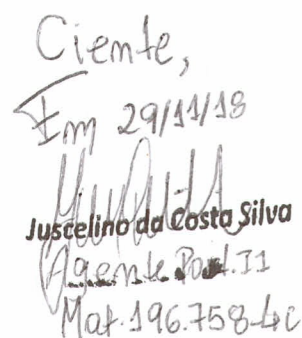 Ciente,
Em 29/11/18
Juscelino da Costa Silva
Agente Port. II
Mat. 196.758-4C